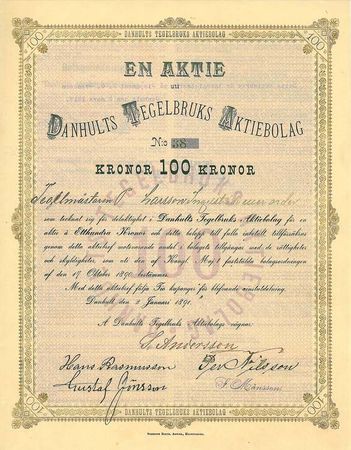 DANHULTS TEGELBRUKS AKTIEBOLAG
100 100
EN AKTIE
uti
DANHULTS TEGELBRUKS AKTIEBOLAG
N:o 38
KRONOR 100 KRONOR
Larsson eller order
som tecknat sig för delaktighet i Danhults Tegelbruks Aktiebolag för en
aktie à Etthundra Kronor har detta belopp till fullo inbetalt
genom detta aktiebref motsvarande andel i bolagets tillgångar med de rättigheter
och skyldigheter, som uti den af Kongl. Maj:t fastställda bolagsordningen
af den 17 Oktober 1890 bestämmes.
Med detta aktiebref följa Tio kuponger för utdelning.
Danhult den 2 Januari 1891.
Å Danhults Tegelbruks Aktiebolags vägnar:
Andersson
Hans Rasmusson Per Nilsson
Gustaf Jönsson Månsson
100 100
DANHULTS TEGELBRUKS AKTIEBOLAG